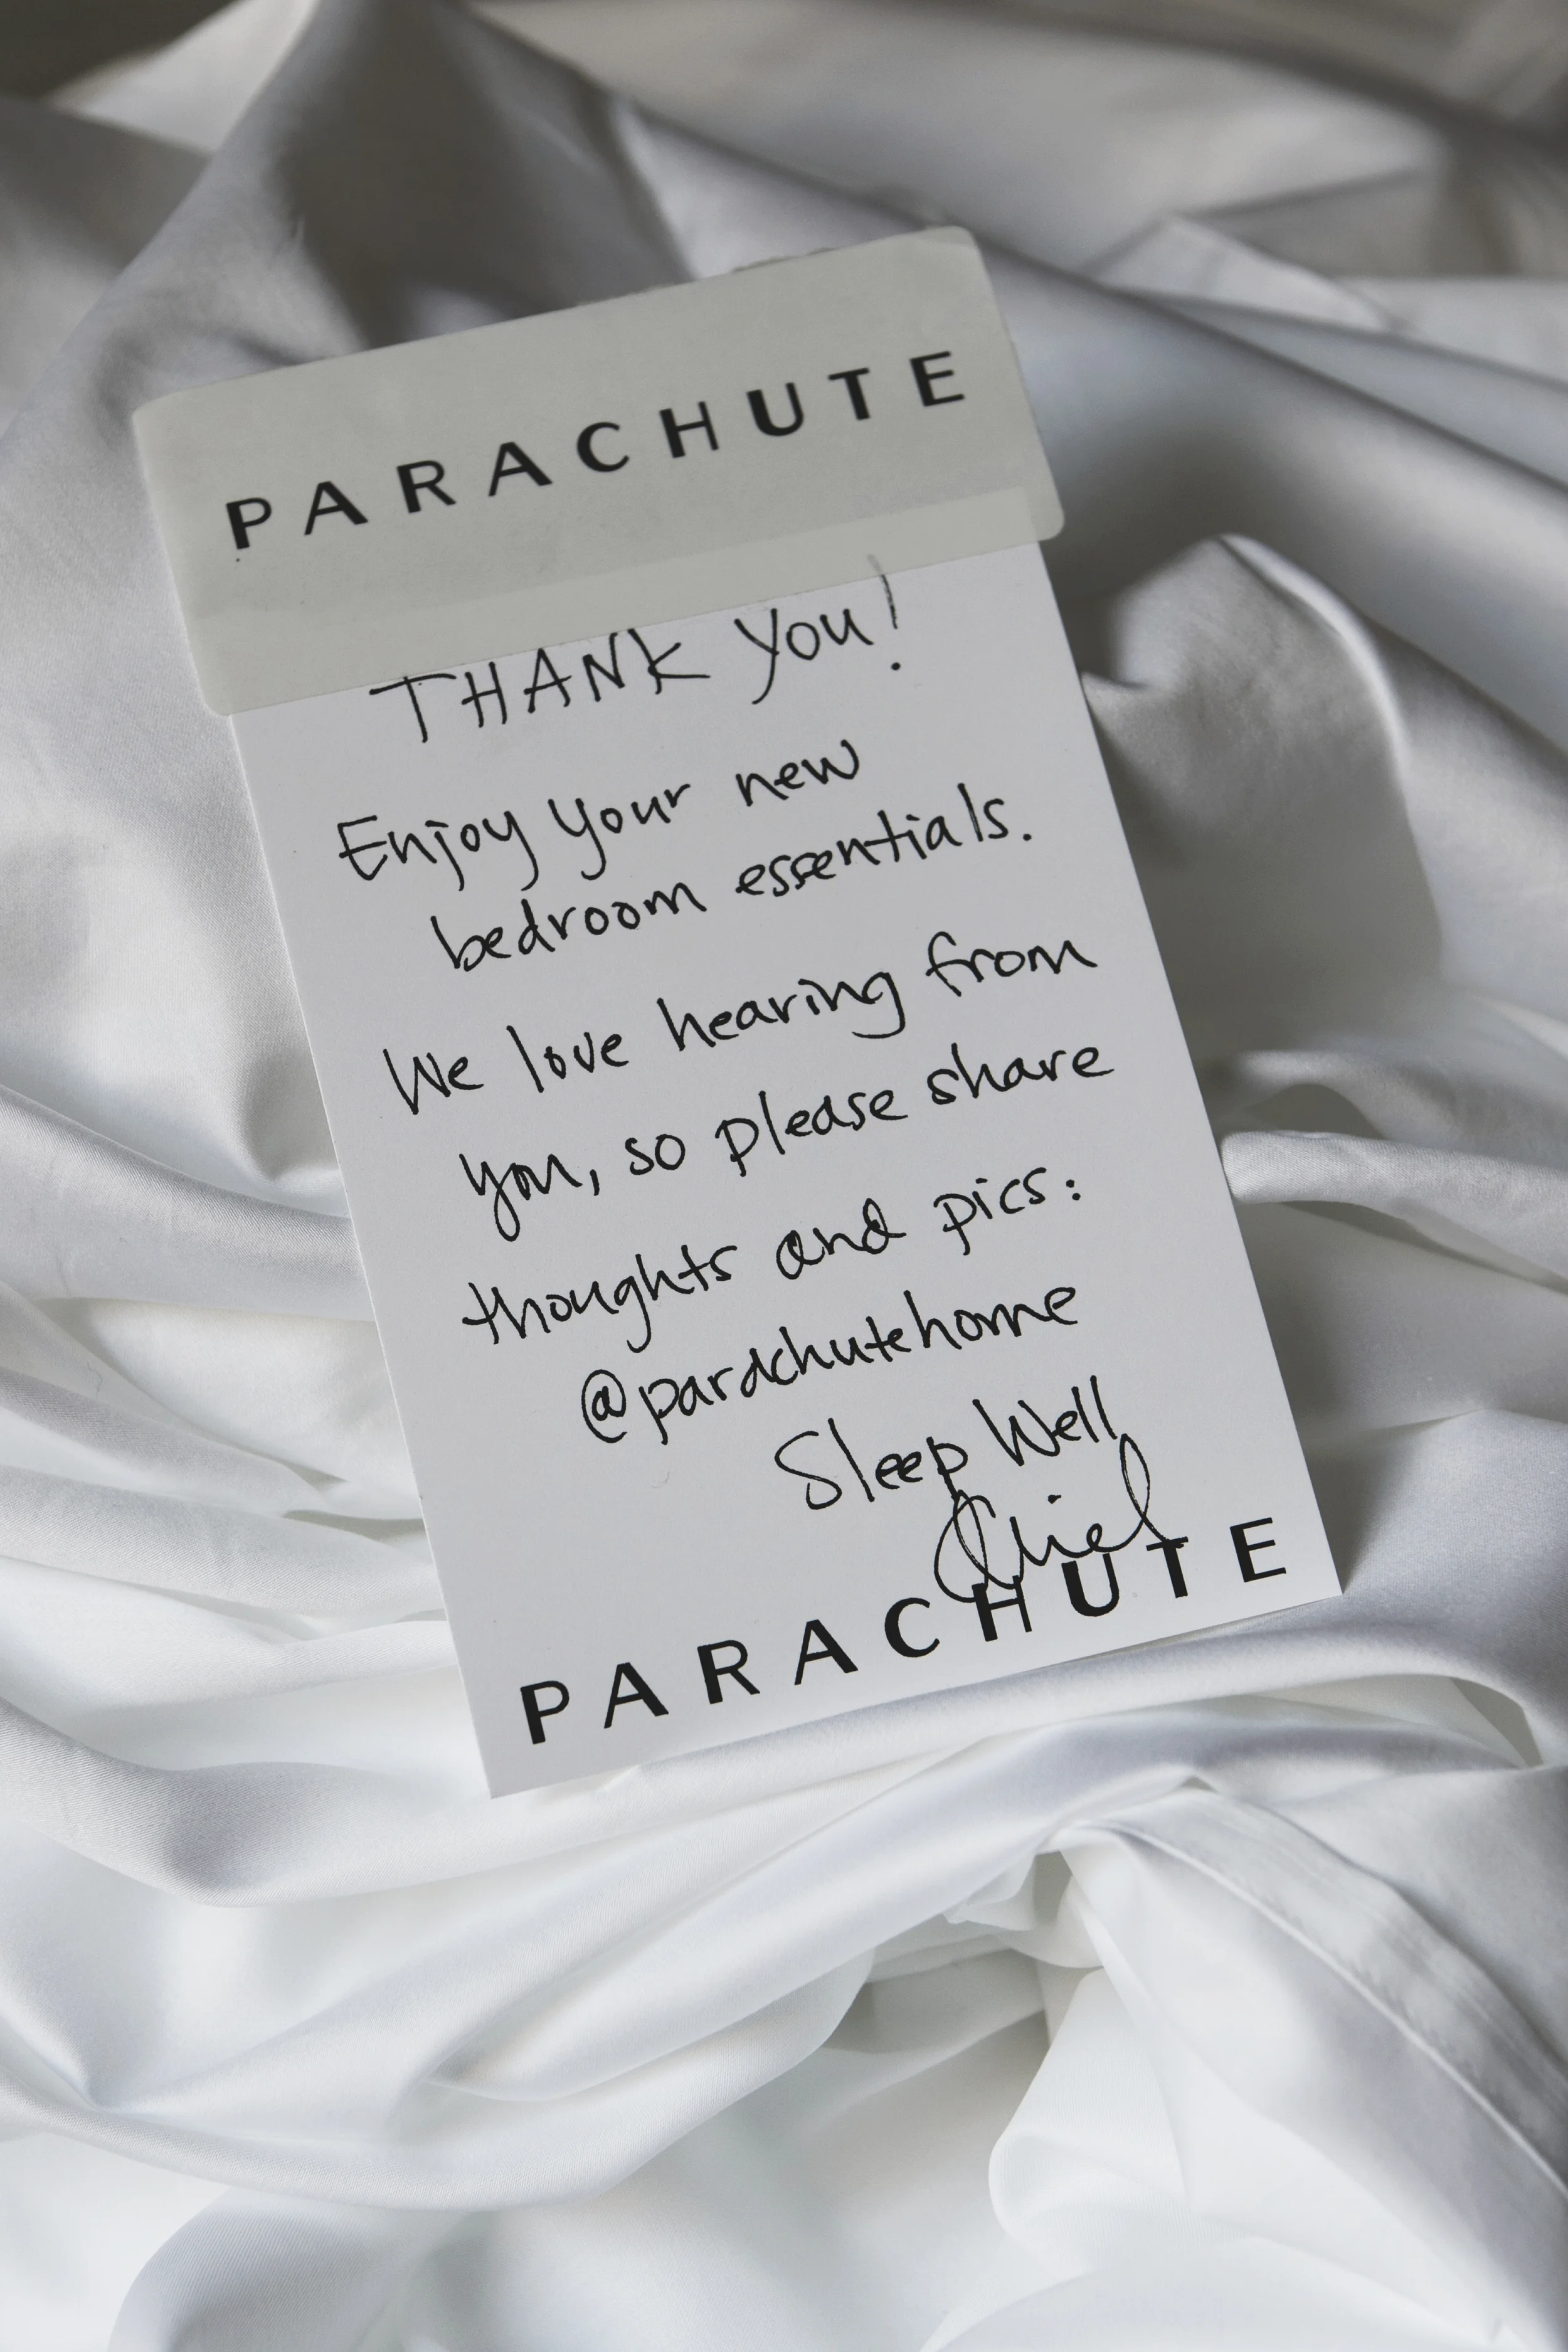 PARACHUTE
THANK YOU!
Enjoy your new
bedroom essentials.
We love hearing from
you, so please share
thoughts and pics:
@parachutehome
Sleep Well
PARACHUTE